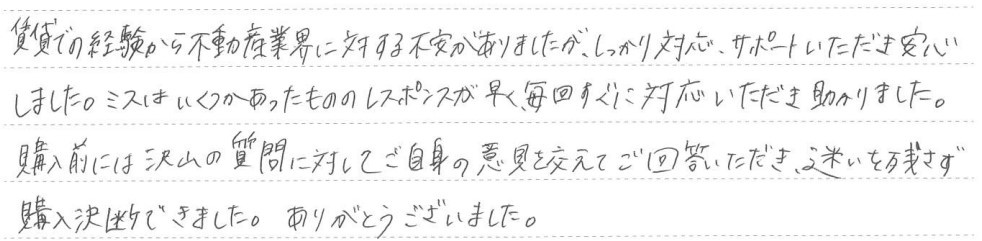 賃貸での経験から不動産業界に対する不安がありましたが、しっかり対応、サポートいただき安心
しました。ミスはいくつかあったもののレスポンスが早く、毎回すぐに対応いただき助かりました。
購入前には沢山の質問に対してご自身の意見を交えてご回答いただき、迷いを残さず
購入決断できました。ありがとうございました。